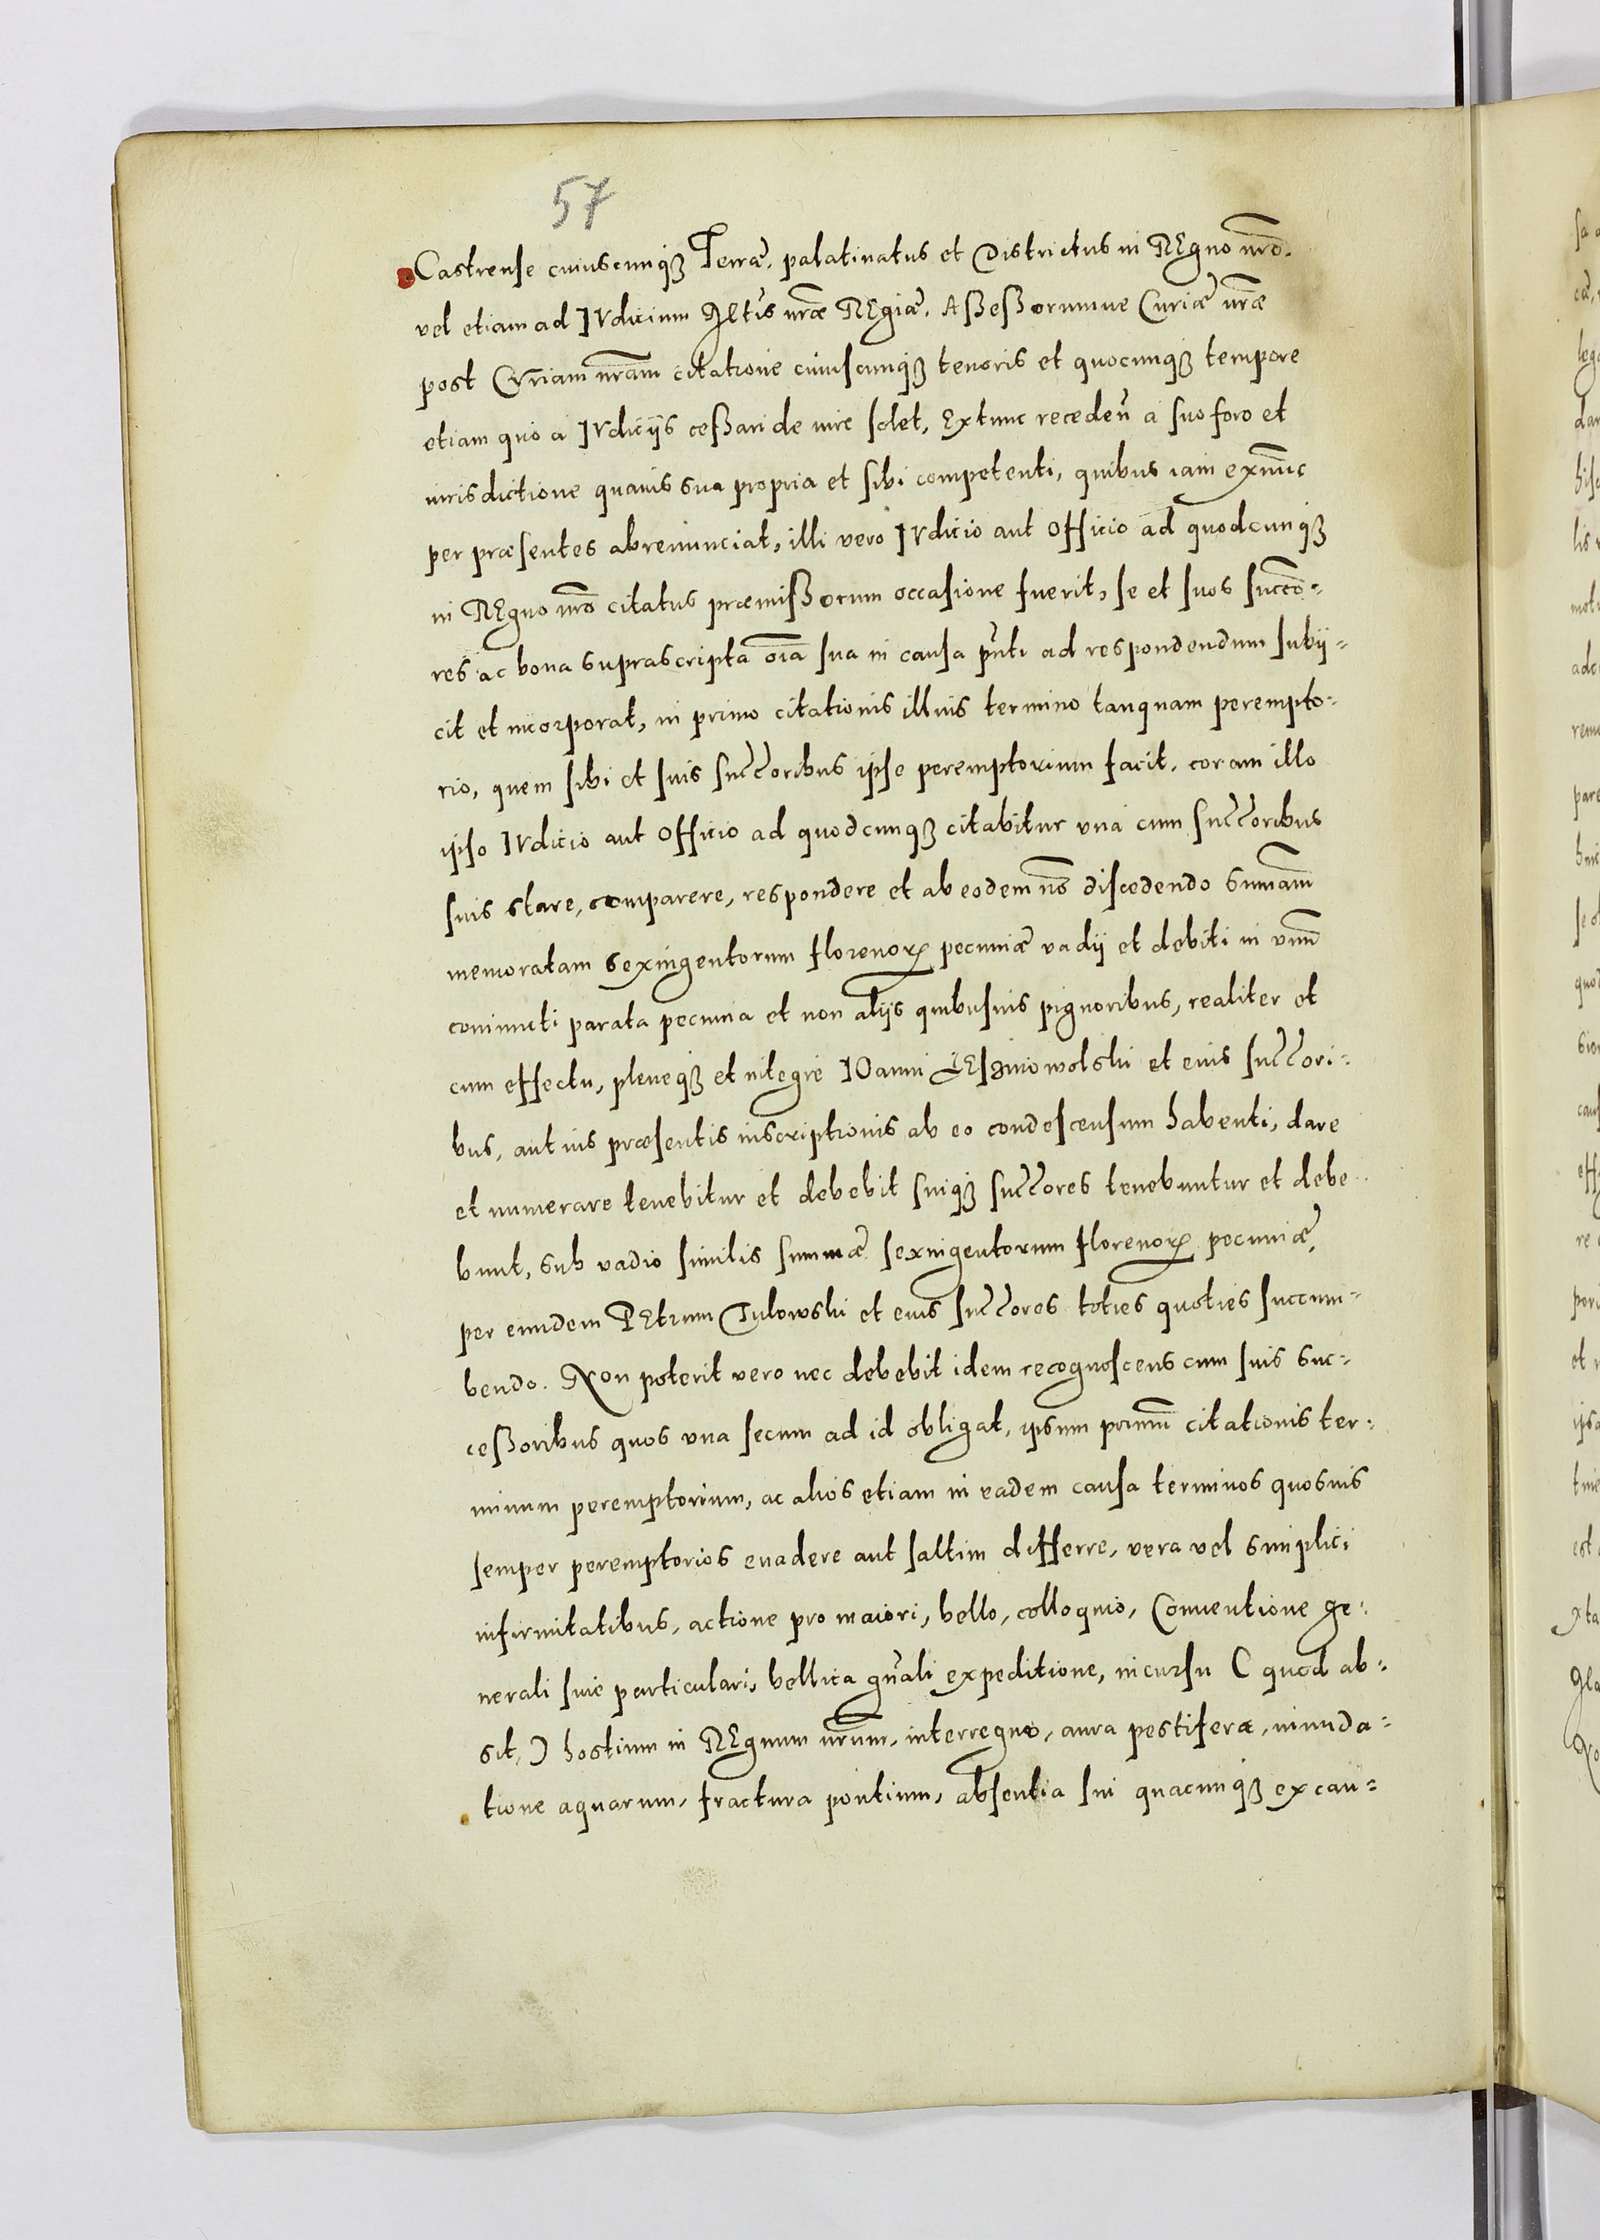 57
Castrense cuiuscunqȝ Terræ, palatinatus et Districtus in REgno nr̄o.
vel etiam ad IVdicium Mt̄is nr̄æ REgiæ, Aßeßorumue Curiæ nr̄æ
post CVriam nr̄am citatione cuiuscunqȝ tenoris et quocunqȝ tempore
etiam quo à IVdicijs ceßari de iure solet, Extunc recedeñ à suo foro et
iurisdictione quauis sua propria et sibi competenti, quibus iam exnūc
per præsentes abrenunciat, illi vero IVdicio aut Officio ad quodcunqȝ
in REgno nr̄o citatus præmißorum occasione fuerit, se et suos succō-
res ac bona suprascripta oīa sua in causa pn̄ti ad respondendum subij-
cit et incorporat, in primo citationis illius termino tanquam perempto-
rio, quem sibi et suis succōribus ipse peremptorium facit, coram illo
ipso IVdicio aut Officio ad quodcunqȝ citabitur vnà cum succōribus
suis stare, comparere, respondere et ab eodem nō discedendo summam
memoratam sexingentorum florenorꝝ pecuniæ vadij et debiti in vnū
coniuncti parata pecunia et non alijs quibusuis pignoribus, realiter et
cum effectu, pleneqȝ et integre IOanni LEszniowolski et eius succōri-
bus, aut ius præsentis inscriptionis ab eo condescensum habenti, dare
et numerare tenebitur et debebit suiqȝ succōres tenebuntur et debe
bunt, sub vadio similis summæ sexingentorum florenorꝝ pecuniæ,
per eundem PEtrum Tulowski et eius succōres toties quoties succum-
bendo. Non poterit vero nec debebit idem recognoscens cum suis suc-
ceßoribus quos vna secum ad id obligat, ipsum primū citationis ter-
minum peremptorium, ac alios etiam in eadem causa terminos quosuis
semper peremptorios euadere aut saltim differre, vera vel simplici
infirmitatibus, actione pro maiori, bello, colloquio, Conuentione ge-
nerali siue particulari, bellica gn̄ali expeditione, incursu ( quod ab-
sit, ) hostium in REgnum nr̄um, interregno, aura pestifera, inunda-
tione aquarum, fractura pontium, absentia sui quacunqȝ ex cau-